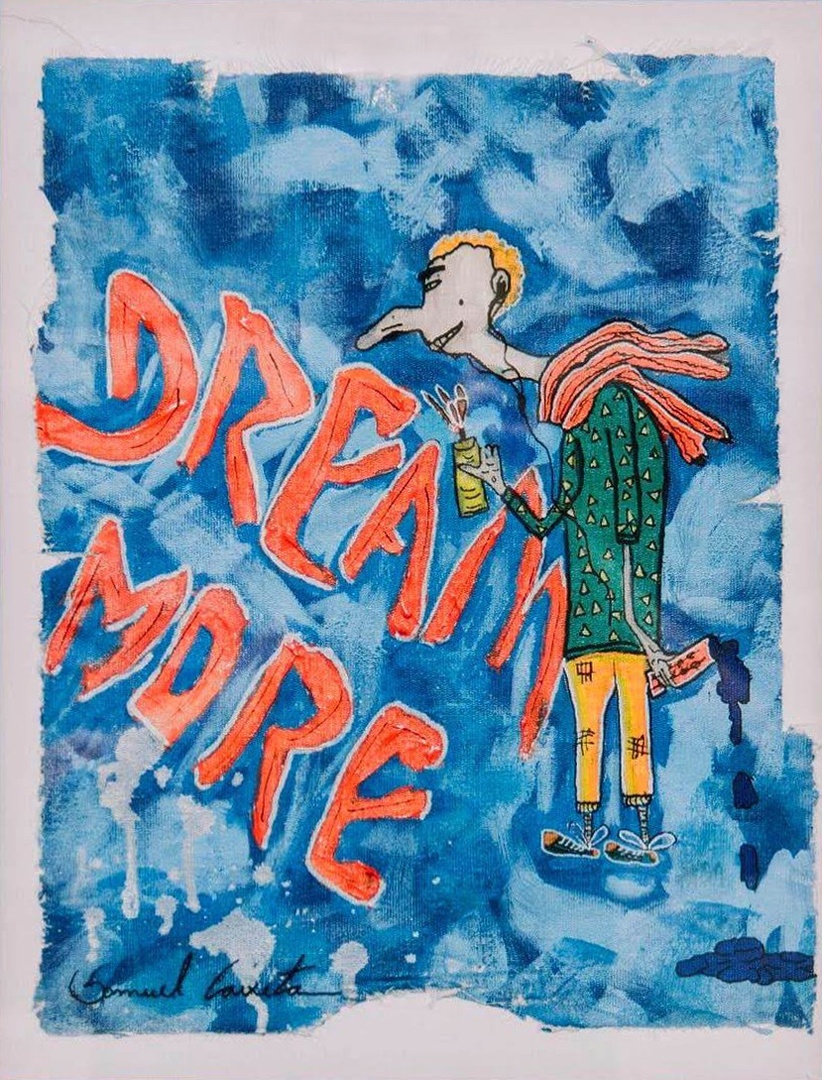 DREAM
MORE
Samuel Caixeta